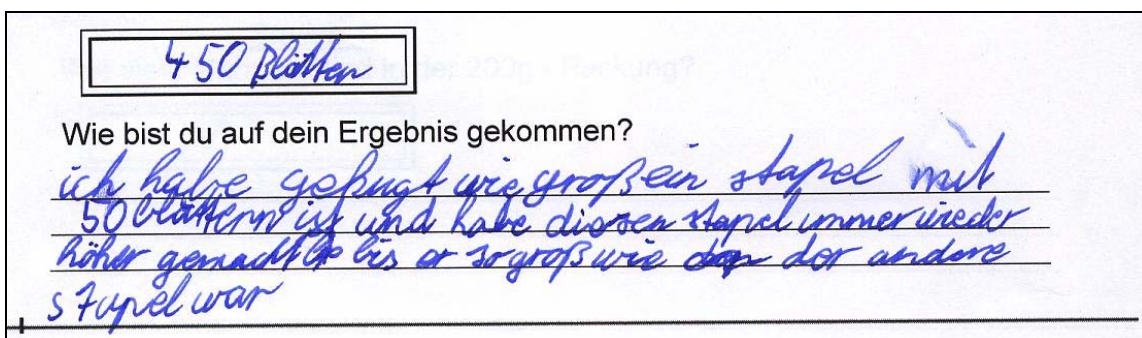 450 Blätter
Wie bist du auf dein Ergebnis gekommen?
ich habe gefragt wie groß ein stapel mit
50 blättern ist und habe diesen stapel immer wieder
höher gemacht bis er so groß wie der andere
stapel war